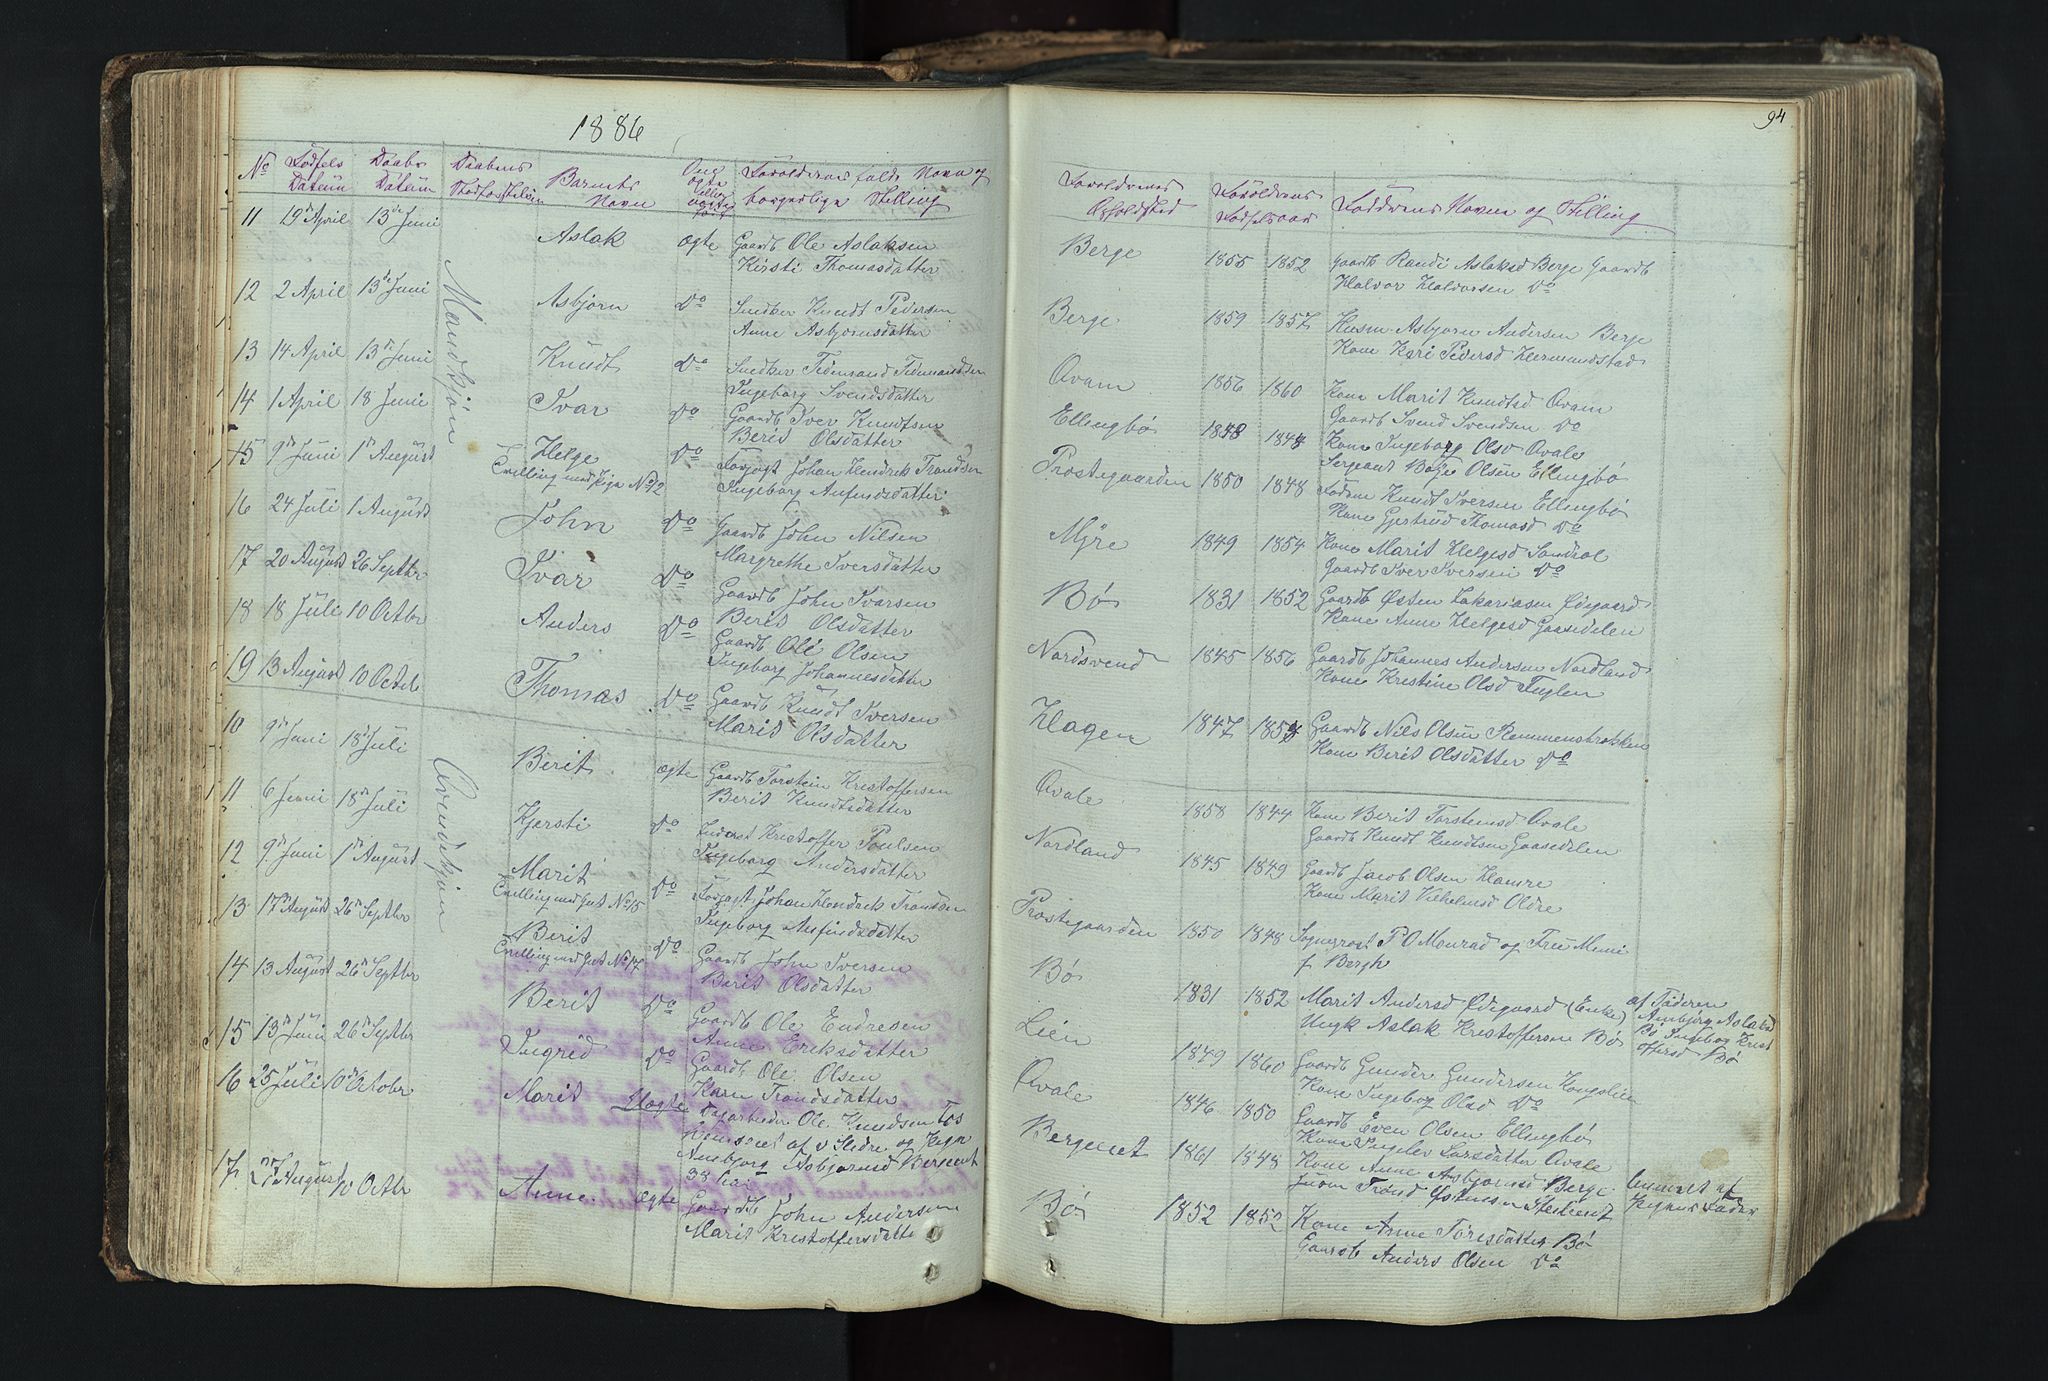 1886
No Fødsels Daabs Daabens Barnets Forældrenes fulde Navn og
Datum Datum Navn borgerlige Stilling
11 19de April 13de Juni Aslak ægte Gaardb Ole Aslaksen
Kirsti Thomasdatter
Mandkjøn
12 2 April 13de Juni Asbjørn Do Snedker Knudt Pedersen
Anne Asbjørnsdatter
13 14 April 13de Juni Knudt Do Snedker Tidemand Tidemandsen
Ingeborg Svendsdatter
14 1 April 18 Juni Ivar Do Gaardb Iver Knudtsen
Berit Olsdatter
15 9de Juni 1ste August Helge Do Forpagt Johan Hendrik Trondsen
Tvilling med Pige No 12 Ingeborg Anfindsdatter
16 24 Juli 1 August John Do Gaardb John Nilsen
Margrethe Iversdatter
17 20 August 26 Septbr Ivar Do Gaardb John Ivarsen
Berit Olsdatter
18 18 Juli 10 Octbr Anders Do Gaardb Ole Olsen
Ingeborg Johannesdatter
19 13 August 10 Octb Thomas Do Gaardb Knudt Iversen
Marit Olsdatter
10 9de Juni 18de Juli Berit ægte Gaardb Torstein Kristoffersen
Berit Knudtsdatter
Qvindekjøn
11 6 Juni 18de Juli Kjersti Do Inderst Kristoffer Poulsen
Ingeborg Andersdatter
12 9de Juni 1ste August Marit Do Forpagt Johan Hendrik Trondsen
Tvilling med Gut No 15 Ingeborg Anfindsdatter
13 17de August 26de Septbr Berit Do Gaardb John Iversen
Tvilling med Gut No 17 Berit Olsdatter
14 13 August 26de Septbr Berit Do Gaardb Ole Endresen
Anne Eriksdatter
15 13de Juni 26de Septbr Ingrid Do Gaardb Ole Olsen
Kari Trondsdatter
16 25 Juli 10de October Marit Uægte Dagarbeider Ole Knudsen
af v Slidre og Pigen
Ambjørg Asbjørnsd Bergeeiet
17 27 August 10 Octbr Anne ægte Gaardb John Andersen
Marit Kristoffersdatter
94
Forældrenes Forældrenes Faddrenes Navne og Stilling
Opholdsted Fødselsaar
Berge 1855 1852 Gaardb Randi Aslaksd Berge Gaardb
Halvor Halvorsen Do
Berge 1859 1857 Husm Asbjørn Andersen Berge
Kone Kari Pedersd Hermundstad
Qvam 1856 1860 Kone Marit Knudtsd Qvam
Gaardb Svend Svendsen Do
Ellingbø 1848 1844 Kone Ingeborg Olsd Qvale
Sergeant Boye Olsen Ellingbø
Prostegaarden 1850 1848 Knudt Iversen Ellingbø
Kone Gjertrud Thomasd Do
Myre 1849 1854 Kone Marit Helgesd Sandrol
Gaardb Iver Iversen Do
Bø 1831 1852 Gaardb Østen Zakariasen Ødegaard
Kone Anne Helgesd Gaasedelen
Nordsvend 1845 1856 Gaardb Johannes Andersen Nordland
Kone Kristine Olsd Fuglen
Hagen 1847 185 Gaardb Nils Olsen Remmensbrokken
Kone Berit Olsdatter Do
Qvale 1858 1844 Kone Berit Torsteinsd Qvale
Gaardb Knudt Knudtsen Gaasedelen
Nordland 1845 1849 Gaardb Jacob Olsen Hamre
Kone Marit Vilhelmsd Oldre
Prostegaarden 1850 1848 Sogneprost P O Monrad og Frue Memi
f Bergh
Bø 1831 1852 Marit Andersd Ødegaard (Enke) af Faderen
Ungk Aslak Kristoffersen Bø Ambjørg Aslaksd
Bø Ingeborg Krist
offersd Bø
Lien 1849 1860 Gaardb Gunder Gundersen Kongslien
Kone Ingeborg Olsd Do
Qvale 1846 1850 Gaardb Even Olsen Ellingbø
Kone Ingelev Larsdatter Qvale
Bergeeiet 1861 1848 Kone Anne Asbjørnsd Berge
Trond Østensen Anmeldt af
Pigens Fader
Bø 1852 1852 Kone Anne Toresdatter Bø
Gaardb Anders Olsen Do